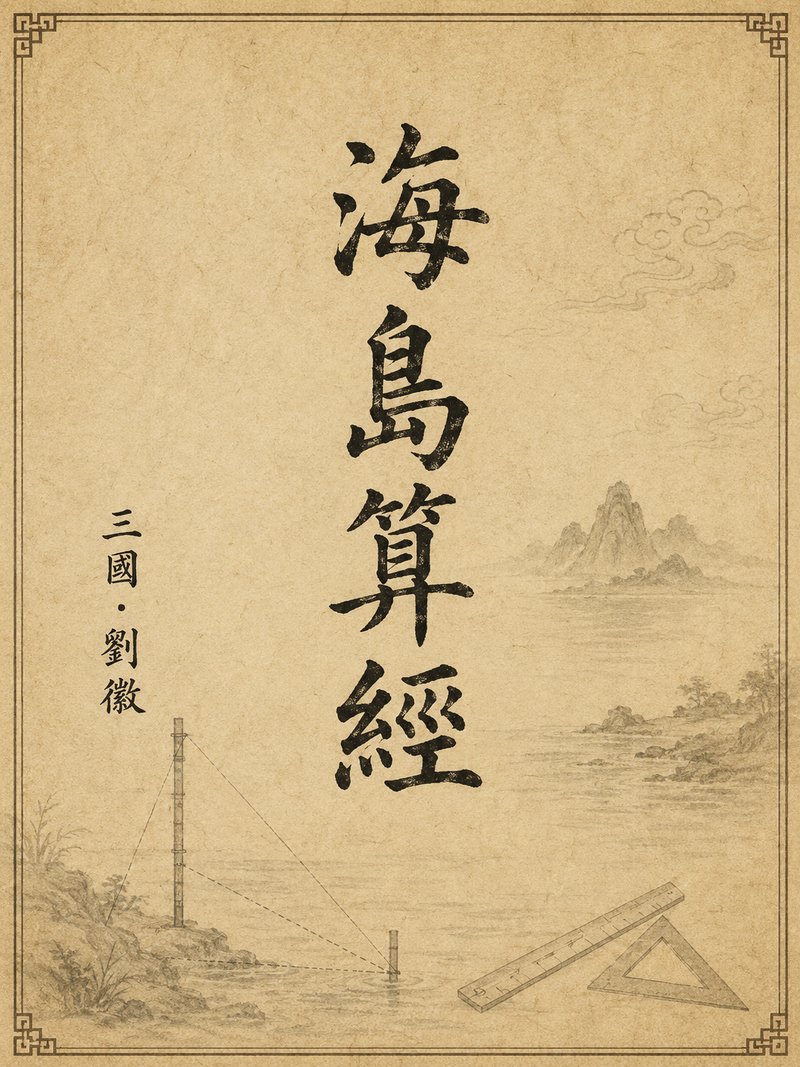 海島算經
三國・劉徽